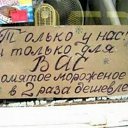 Только у нас!
и только для
ВАС
помятое мороженое
в 2 раза дешевле